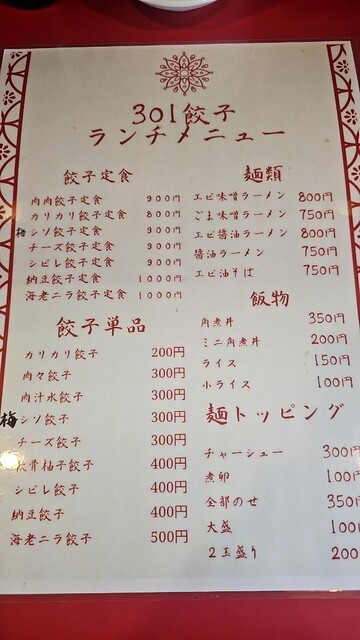 301餃子
ランチメニュー
餃子定食
肉肉餃子定食 900円
カリカリ餃子定食 800円
梅シソ餃子定食 900円
チーズ餃子定食 900円
シビレ餃子定食 900円
納豆餃子定食 1000円
海老ニラ餃子定食 1000円
餃子単品
カリカリ餃子 200円
肉々餃子 300円
肉汁水餃子 300円
梅シソ餃子 300円
チーズ餃子 300円
軟骨柚子餃子 400円
シビレ餃子 400円
納豆餃子 400円
海老ニラ餃子 500円
麺類
エビ味噌ラーメン 800円
ごま味噌ラーメン 750円
エビ醤油ラーメン 800円
醤油ラーメン 750円
エビ油そば 750円
飯物
角煮丼 350円
ミニ角煮丼 200円
ライス 150円
小ライス 100円
麺トッピング
チャーシュー 300円
煮卵 100円
全部のせ 350円
大盛 100
2玉盛り 200